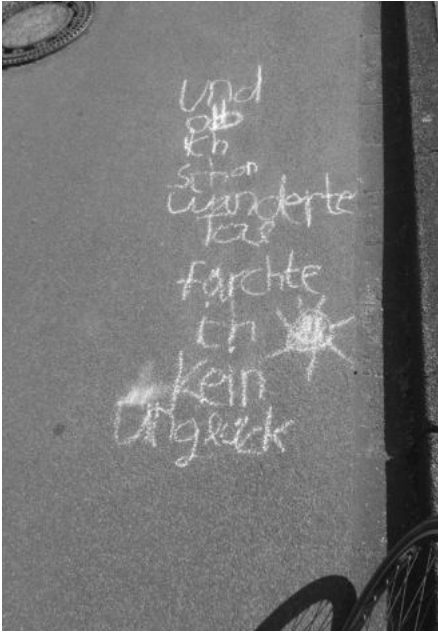 und
ob
ich
schon
wanderte
Tal
fürchte
ich
Kein
Unglück